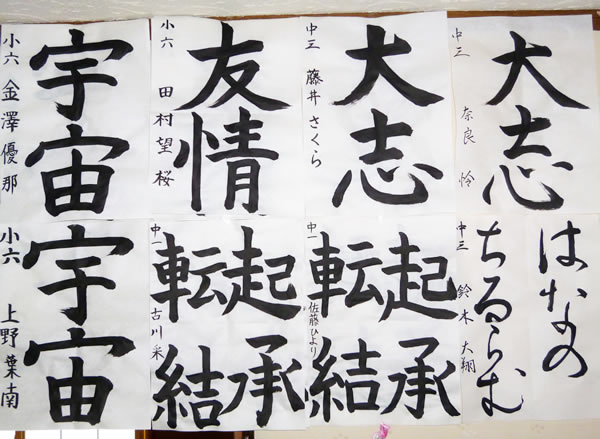 宇宙
小六 金澤優那
友情
小六 田村望桜
大志
中三 藤井さくら
大志
中三 奈良 怜
宇宙
小六 上野葉南
起承
転結
中一 古川 采
起承
転結
中一 佐藤ひより
はなの
ちるらむ
中三 鈴木 大翔